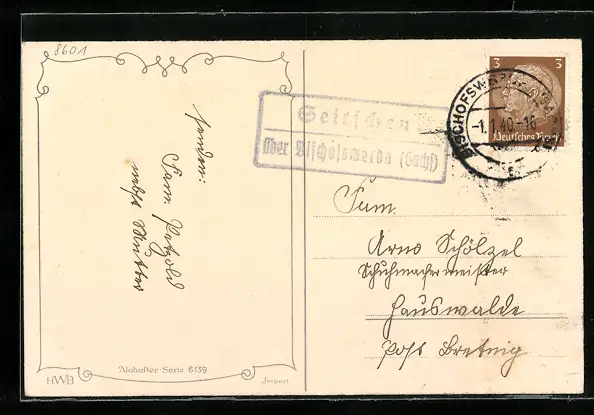 8601
senden:
Fam. Petzold
nebst Mutter
HWB
Alabaster Serie 6139
Import
Geißchen
über Bischofswerda (Sachs)
BISCHOFSWERDA
-1.1.40-16
3 3
Deutsches Reich
Fam.
Arno Schölzel
Schuhmachermeister
Hauswalde
Post Bretnig